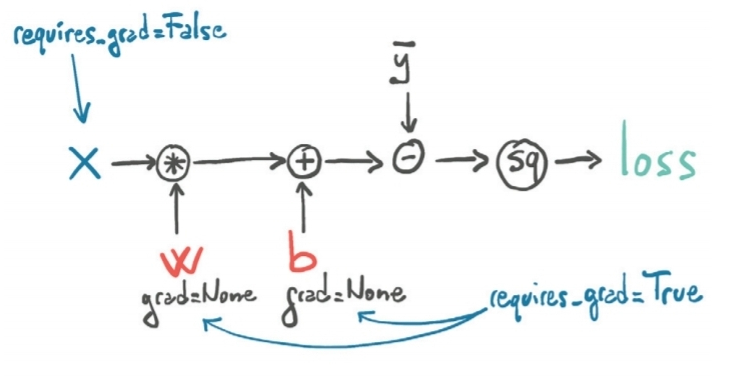 requires_grad=False
ȳ
X * + - sq loss
w b
grad=None grad=None requires_grad=True